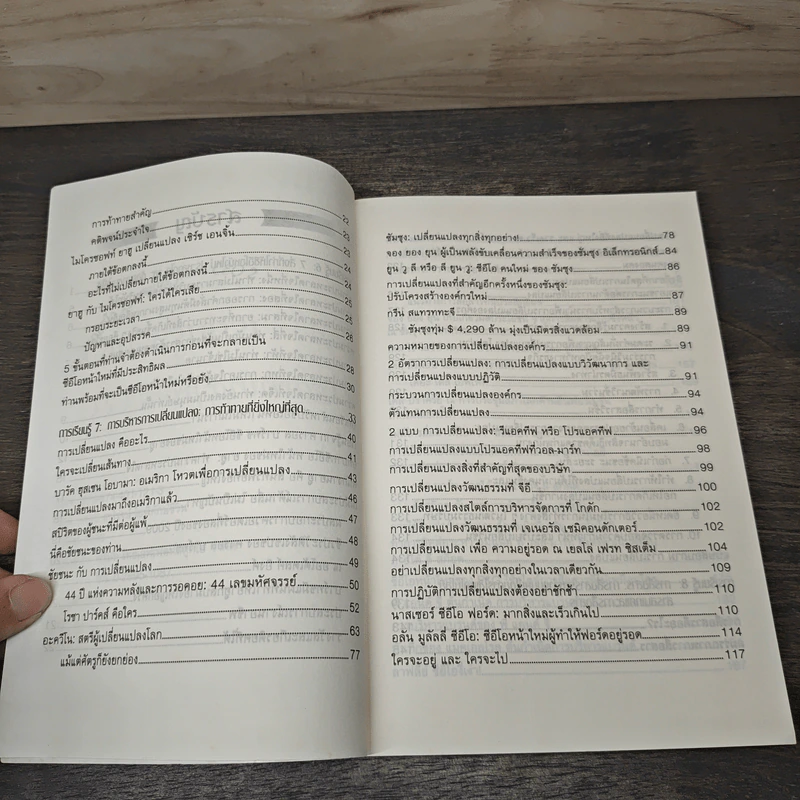 การท้าทายสำคัญ 22
คติพจน์ประจำใจ 23
ไมโครซอฟท์ ยาฮู เปลี่ยนแปลง เซิร์ช เอนจิ้น 23
ภายใต้ข้อตกลงนี้ 24
อะไรที่ไม่เปลี่ยนภายใต้ข้อตกลงนี้ 24
ยาฮู กับ ไมโครซอฟท์: ใครได้ใครเสีย 24
กรอบระยะเวลา 25
ปัญหาและอุปสรรค 25
5 ขั้นตอนที่ท่านจำต้องดำเนินการก่อนที่จะกลายเป็น
ซีอีโอหน้าใหม่ที่มีประสิทธิผล 28
ท่านพร้อมที่จะเป็นซีอีโอหน้าใหม่หรือยัง 30
การเรียนรู้ 7: การบริหารการเปลี่ยนแปลง: การท้าทายที่ยิ่งใหญ่ที่สุด 33
การเปลี่ยนแปลง คืออะไร 40
ใครจะเปลี่ยนเส้นทาง 41
บารัค ฮุสเซน โอบามา: อเมริกา โหวตเพื่อการเปลี่ยนแปลง 43
การเปลี่ยนแปลงมาถึงอเมริกาแล้ว 46
สปิริตของผู้ชนะที่มีต่อผู้แพ้ 47
นี่คือชัยชนะของท่าน 48
ชัยชนะ กับ การเปลี่ยนแปลง 49
44 ปี แห่งความหลังและการรอคอย: 44 เลขมหัศจรรย์ 50
โรซา ปาร์คส์ คือใคร 52
อะควีโน: สตรีผู้เปลี่ยนแปลงโลก 63
แม้แต่ศัตรูก็ยังยกย่อง 77
ซัมซุง: เปลี่ยนแปลงทุกสิ่งทุกอย่าง! 78
จอง ยอง ยุน ผู้เป็นพลังขับเคลื่อนความสำเร็จของซัมซุง อิเล็กทรอนิกส์ 84
ยุน วู ลี หรือ ลี ยุน วู: ซีอีโอ คนใหม่ ของ ซัมซุง 86
การเปลี่ยนแปลงที่สำคัญอีกครั้งหนึ่งของซัมซุง:
ปรับโครงสร้างองค์กรใหม่ 87
กรีน สแทรททะจี 89
ซัมซุงทุ่ม $ 4,290 ล้าน มุ่งเป็นมิตรสิ่งแวดล้อม 89
ความหมายของการเปลี่ยนแปลงองค์กร 91
2 อัตราการเปลี่ยนแปลง: การเปลี่ยนแปลงแบบวิวัฒนาการ และ
การเปลี่ยนแปลงแบบปฏิวัติ 91
กระบวนการเปลี่ยนแปลงองค์กร 94
ตัวแทนการเปลี่ยนแปลง 94
2 แบบ การเปลี่ยนแปลง: รีแอคทีฟ หรือ โปรแอคทีฟ 96
การเปลี่ยนแปลงแบบโปรแอคทีฟที่วอล-มาร์ท 98
การเปลี่ยนแปลงสิ่งที่สำคัญที่สุดของบริษัท 99
การเปลี่ยนแปลงวัฒนธรรมที่ จีอี 100
การเปลี่ยนแปลงสไตล์การบริหารจัดการที่ โกดัก 102
การเปลี่ยนแปลงวัฒนธรรมที่ เจเนอรัล เซมิคอนดักเตอร์ 102
การเปลี่ยนแปลง เพื่อ ความอยู่รอด ณ เยลโล่ เฟรท ซิสเต็ม 104
อย่าเปลี่ยนแปลงทุกสิ่งทุกอย่างในเวลาเดียวกัน 109
การปฏิบัติการเปลี่ยนแปลงต้องอย่าชักช้า 110
นาสเซอร์ ซีอีโอ ฟอร์ด: มากสิ่งและเร็วเกินไป 110
อลัน มูลัลลี่ ซีอีโอ: ซีอีโอหน้าใหม่ผู้ทำให้ฟอร์ดอยู่รอด 114
ใครจะอยู่ และ ใครจะไป 117